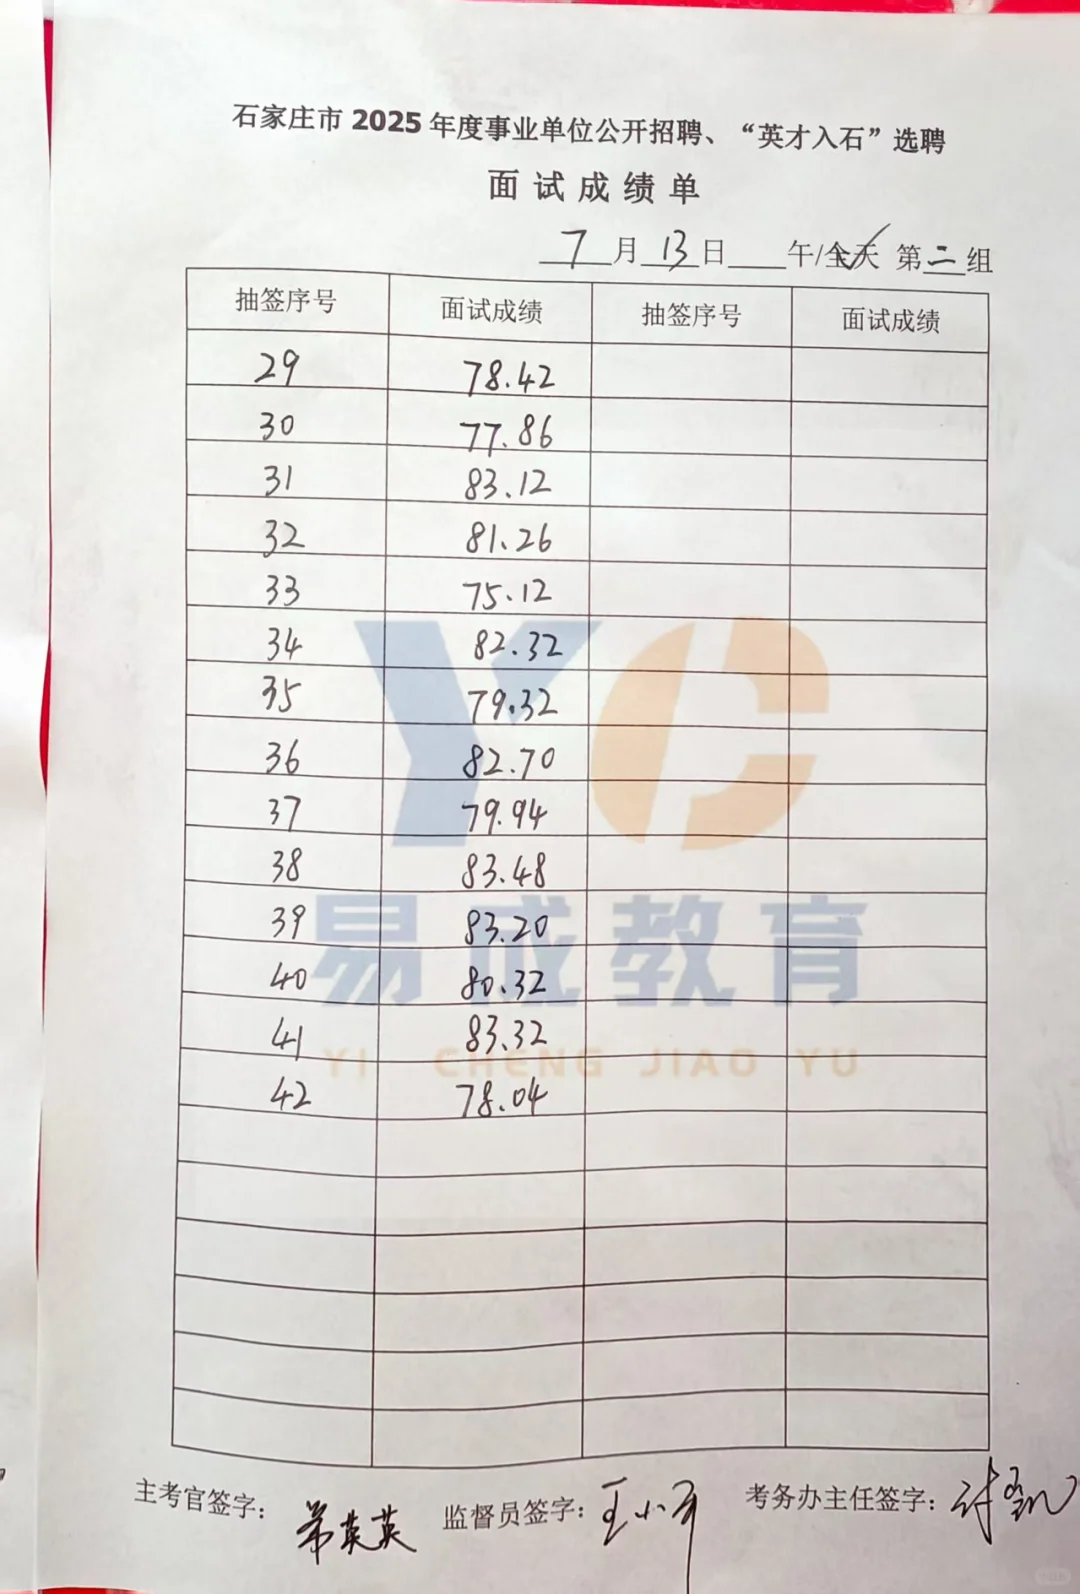 石家庄市 2025 年度事业单位公开招聘、“英才入石”选聘
面试成绩单
7月13日 午/全天 第二组
抽签序号 面试成绩 抽签序号 面试成绩
29 78.42
30 77.86
31 83.12
32 81.26
33 75.12
34 82.32
35 79.32
36 82.70
37 79.94
38 83.48
39 83.20
40 80.32
41 83.32
42 78.04
YC
易成教育
YI CHENG JIAO YU
主考官签字： 英英 监督员签字：王小 考务办主任签字：